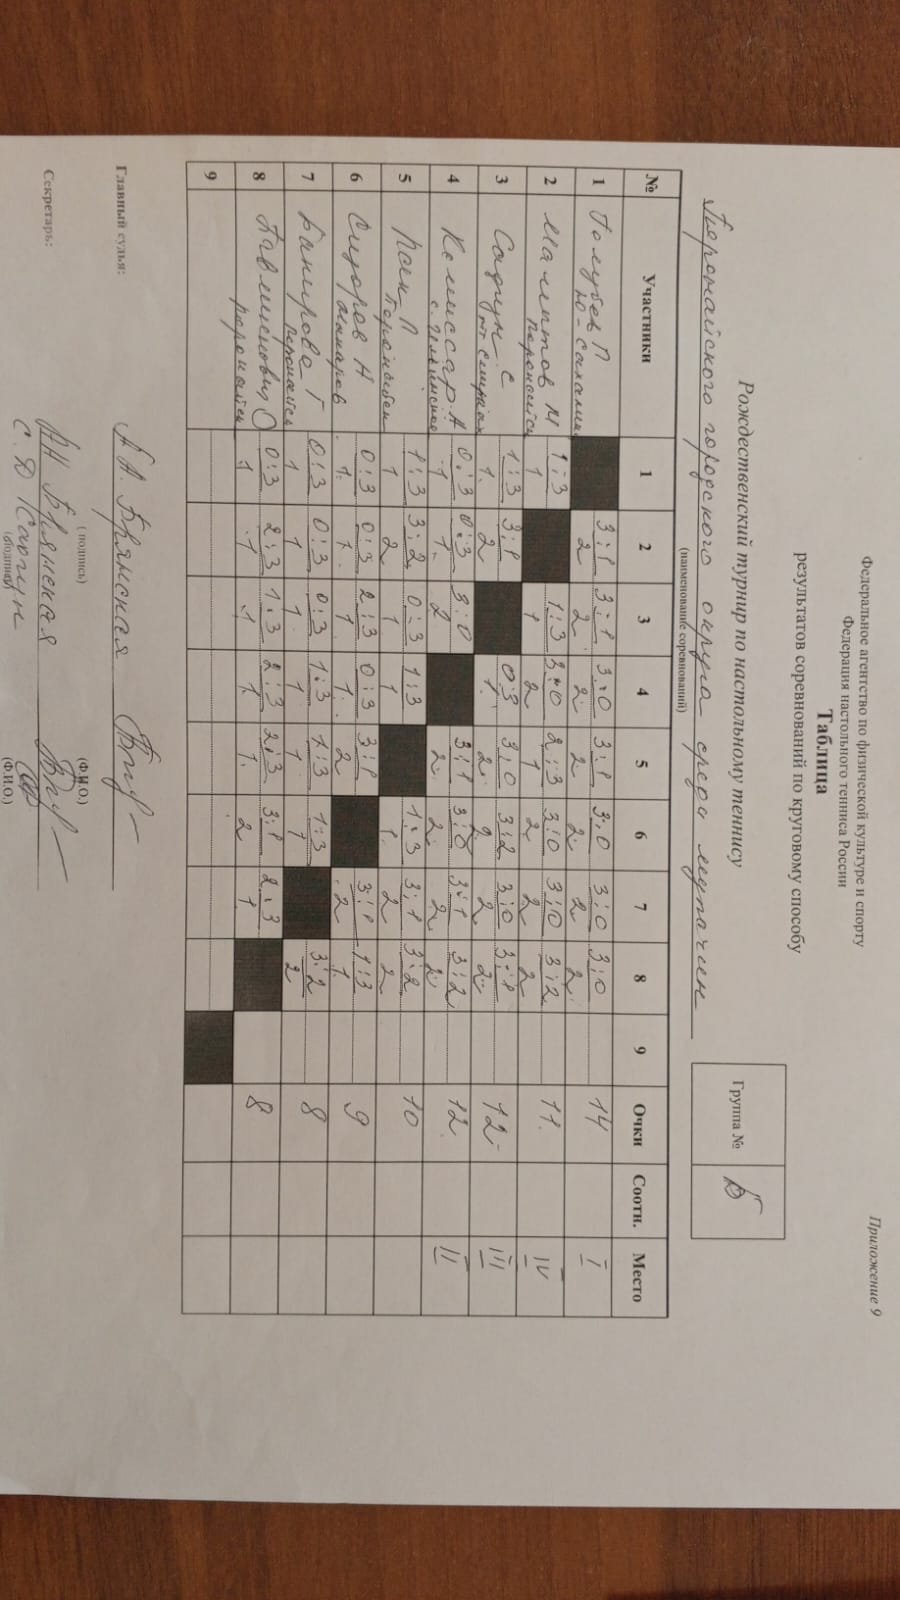 Приложение 9
Федеральное агентство по физической культуре и спорту
Федерация настольного тенниса России
Таблица
результатов соревнований по круговому способу
Группа № Б
Рождественский турнир по настольному теннису
Поронайского городского округа среди мужчин
(наименование соревнований)
№ Участники 1 2 3 4 5 6 7 8 9 Очки Соотн. Место
1 Голубев П 3:1 3:1 3:0 3:1 3:0 3:0 3:0 14 I
Ю-Сахалин 2 2 2 2 2 2 2
2 М 1:3 1:3 3:0 2:3 3:0 3:0 3:2 11 IV
Поронайск 1 1 2 1 2 2 2
3 С 1:3 3:1 0:3 3:0 3:2 3:0 3:1 12 III
1 2 1 2 2 2 2
4 Комиссар А 0:3 0:3 3:0 3:1 3:0 3:1 3:2 12 II
1 1 2 2 2 2 2
5 Пак П 1:3 3:2 0:3 1:3 1:3 3:1 3:2 10
1 2 1 1 1 2 2
6 Сидоров Н 0:3 0:3 2:3 0:3 3:1 3:1 1:3 9
1 1 1 1 2 2 1
7 Г 0:3 0:3 0:3 1:3 1:3 1:3 3:2 8
1 1 1 1 1 1 2
8 0:3 2:3 1:3 2:3 2:3 3:1 2:3 8
Поронайск 1 1 1 1 1 2 1
9
Главный судья: А.А. Брянская
(подпись) (Ф.И.О.)
Секретарь: Брянская
(подпись) (Ф.И.О.)